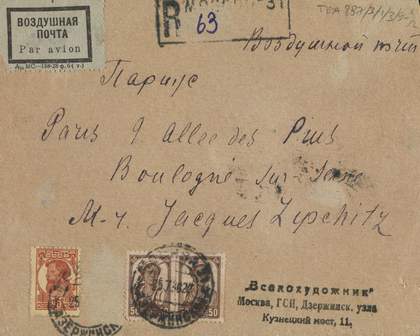 ВОЗДУШНАЯ
ПОЧТА
Par avion
R
63
TGA 887/3/1/3/
Воздушной почт
Париже
Paris 9 Allee des Pins
Boulogne sur Seine
M-r. Jacques Lipchitz
50
50
"Всекохудожник"
Москва, ГСП, Дзержинск. узла
Кузнецкий мост, 11,